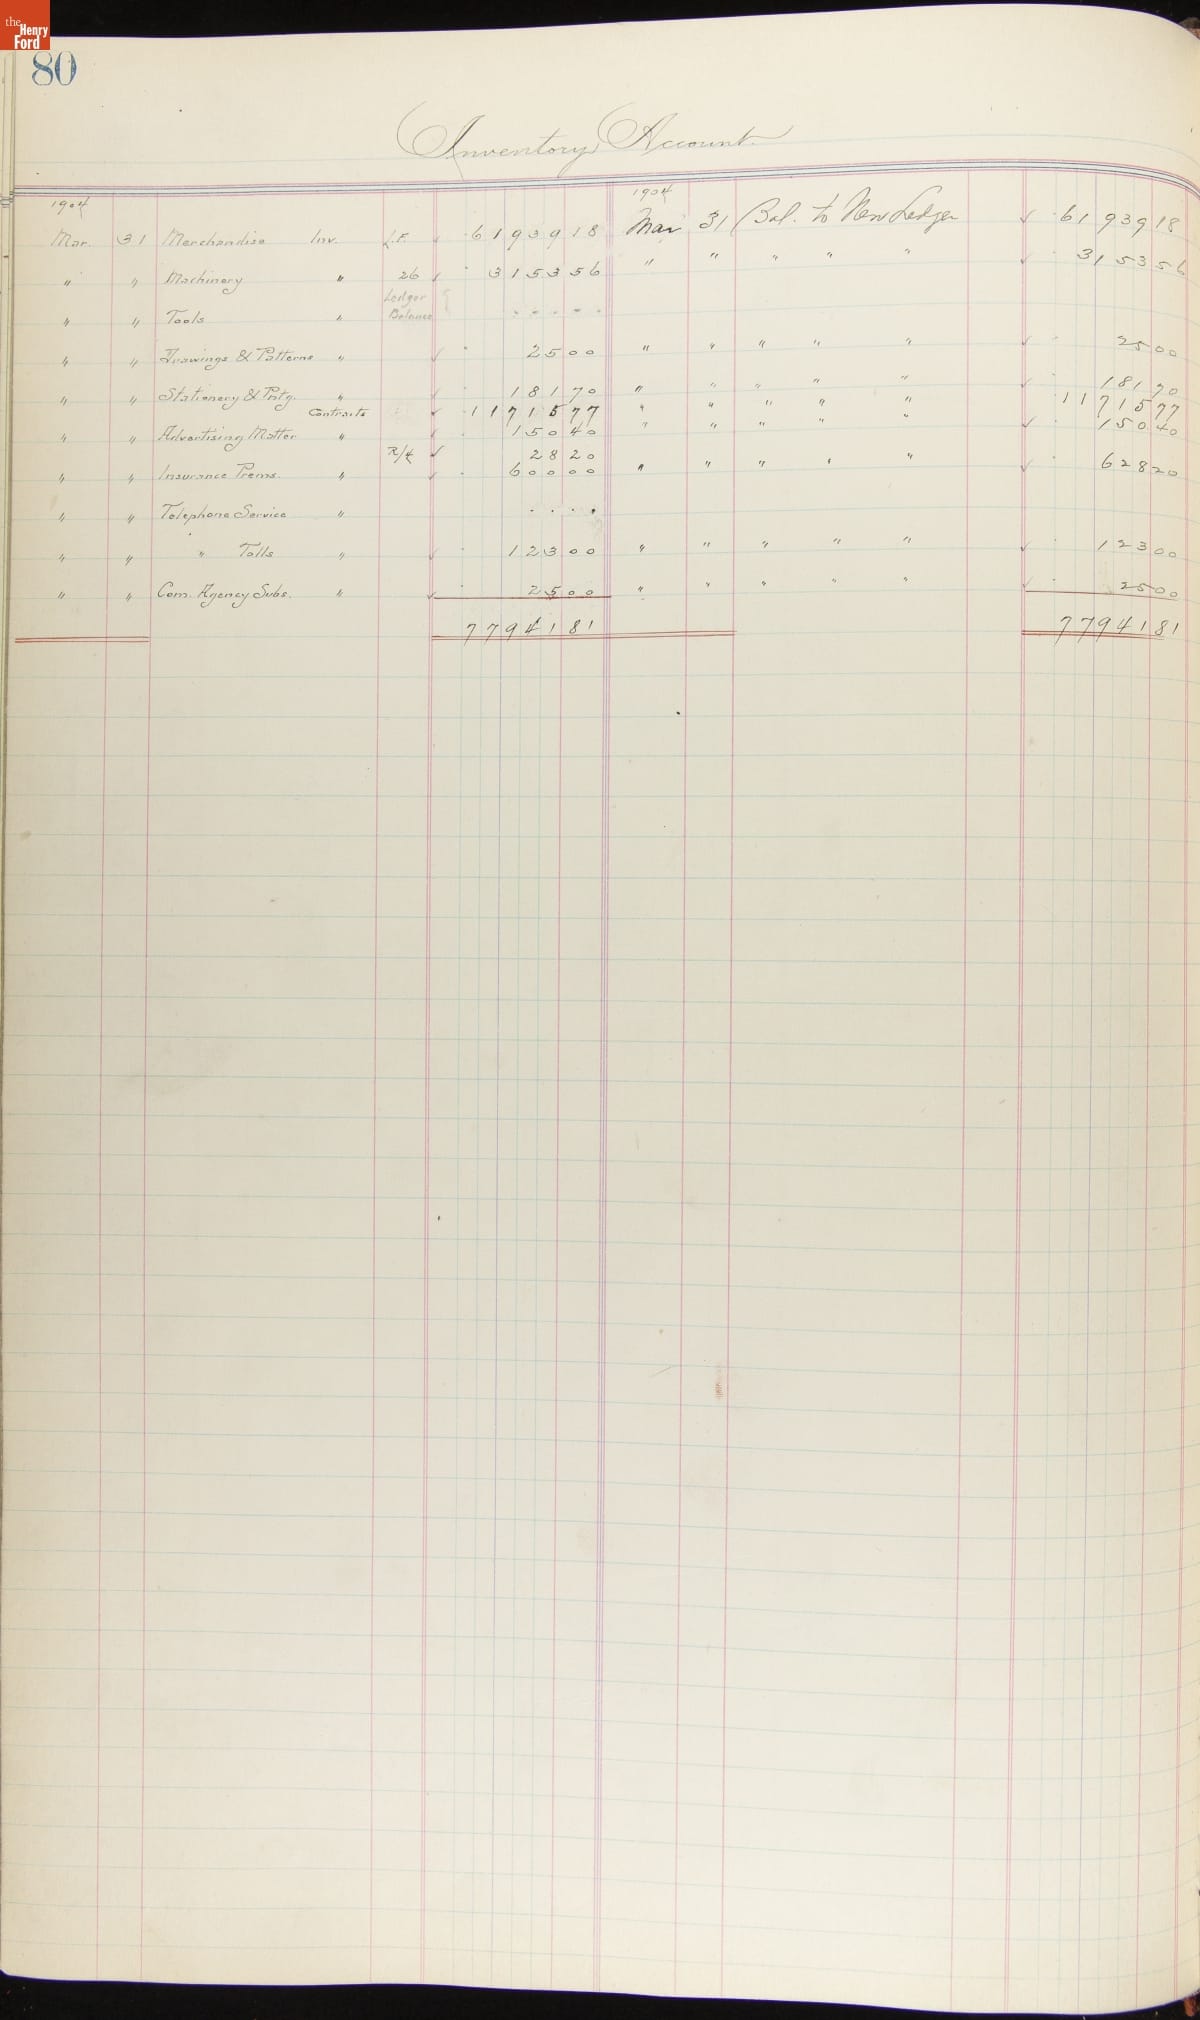 the Henry Ford
80
Inventory Account
1904
Mar. 31 Merchandise Inv. L.F. ✓ 61939 18
" " Machinery " 26 ✓ 3153 56
" " Tools " Ledger Balance - - - - -
" " Drawings & Patterns " ✓ 25 00
" " Stationery & Pntg. " ✓ 181 70
Contracts ✓ 11715 77
" " Advertising Matter " ✓ 150 40
R/4 ✓ 28 20
" " Insurance Prems. " ✓ 600 00
" " Telephone Service " . . . .
" " " Tolls " ✓ 123 00
" " Com. Agency Subs. " ✓ 25 00
77941 81
1904
Mar 31 Bal. to New Ledger ✓ 61939 18
" " " " " ✓ 3153 56
" " " " " ✓ 25 00
" " " " " ✓ 181 70
" " " " " 11715 77
" " " " " ✓ 150 40
" " " " " ✓ 628 20
" " " " " ✓ 123 00
" " " " " ✓ 25 00
77941 81